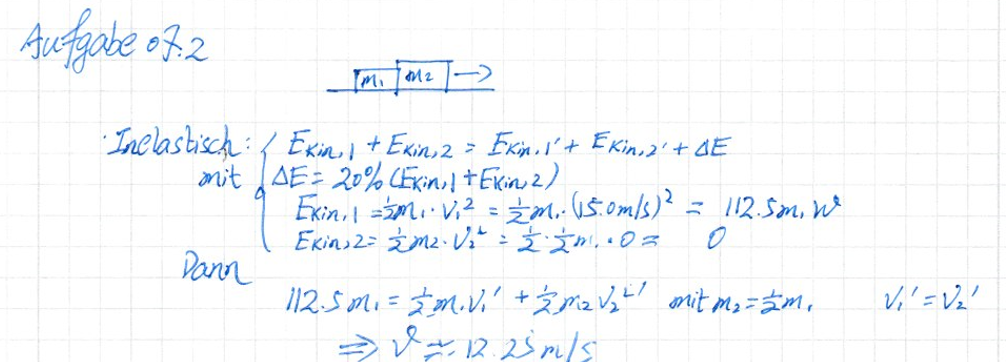 Aufgabe 07.2
m₁ m₂
Inelastisch: { Ekin,1 + Ekin,2 = Ekin,1' + Ekin,2' + ΔE
mit ΔE = 20% (Ekin,1 + Ekin,2)
Ekin,1 = ½m₁·V₁² = ½m₁·(15.0m/s)² = 112.5m₁
Ekin,2 = ½m₂·V₂² = ½·½m₁·0 = 0
Dann
112.5m₁ = ½m₁V₁' + ½m₂V₂²' mit m₂=½m₁ V₁' = V₂'
⇒ V ≈ 12.25 m/s